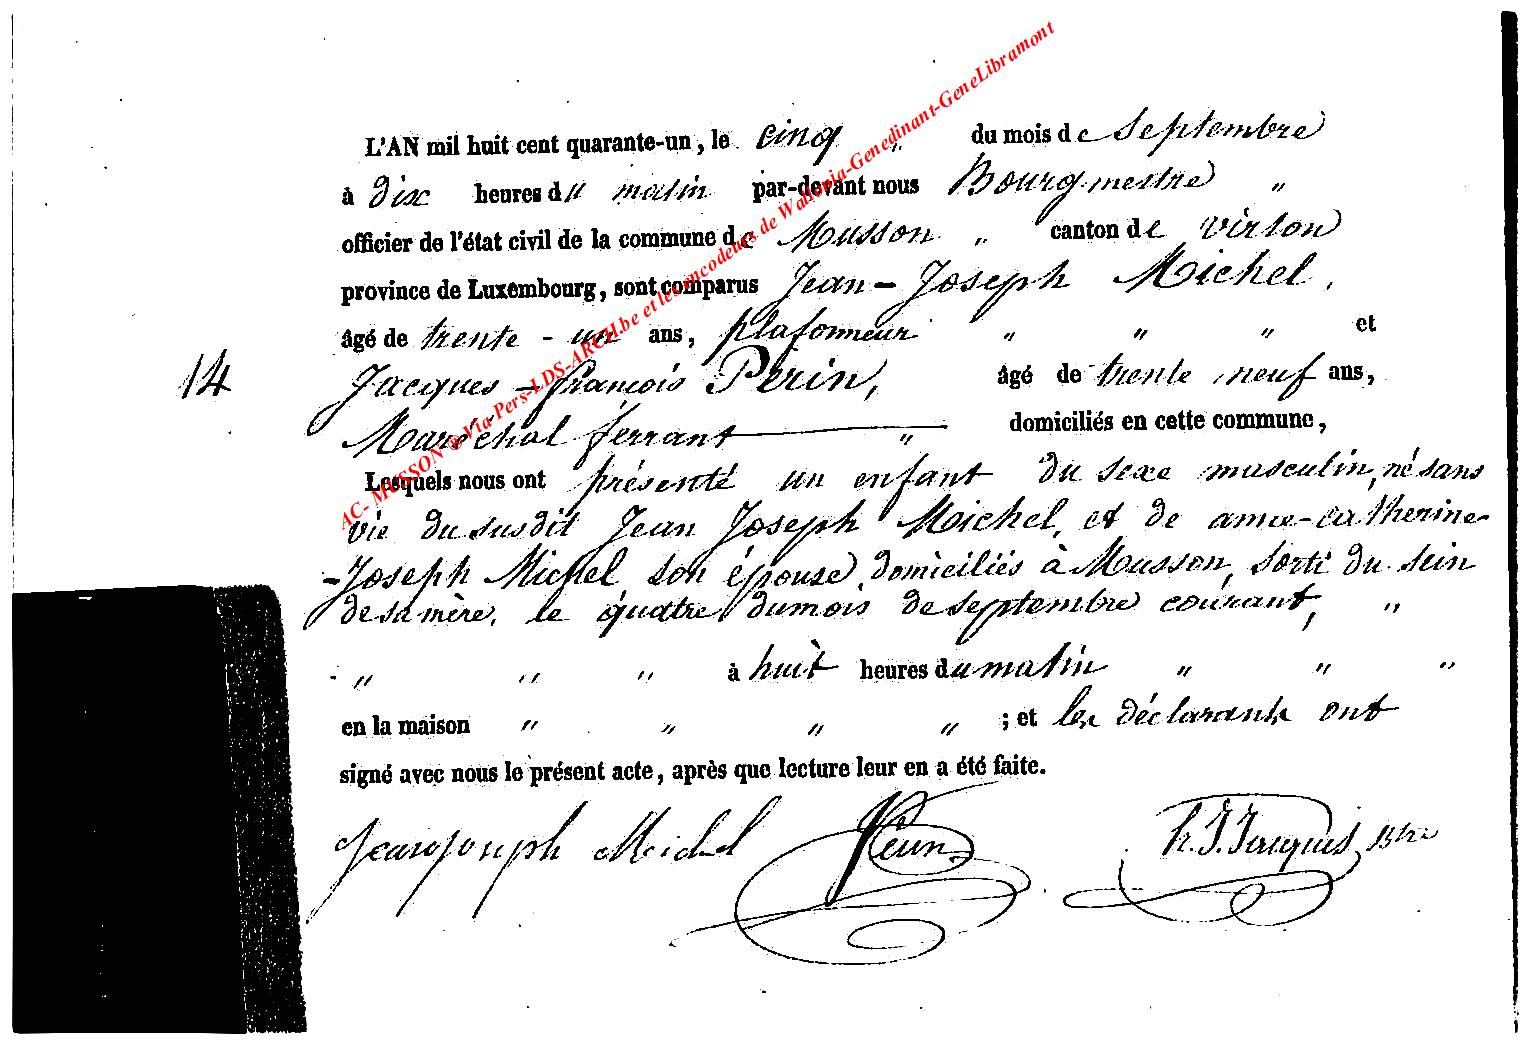 L'AN mil huit cent quarante-un, le cinq " du mois de Septembre
à dix heures du matin par-devant nous Bourgmestre "
officier de l'état civil de la commune de Musson " canton de virton
province de Luxembourg, sont comparus Jean-Joseph Michel,
âgé de trente-un ans, plafonneur " " " et
14 Jacques-françois Pèrin, âgé de trente neuf ans,
Maréchal ferrant " domiciliés en cette commune,
Lesquels nous ont présenté un enfant du sexe masculin, né sans
vie du susdit Jean Joseph Michel, et de anne-catherine-
-Joseph Michel son épouse, domiciliés à Musson, sorti du sein
de sa mère, le quatre du mois de septembre courant, "
" " " à huit heures du matin " " "
en la maison " " " " ; et les déclarants ont
signé avec nous le présent acte, après que lecture leur en a été faite.
Jean Joseph Michel Perin h. J. Jacques
AC- MUSSON © Via-Pers-LDS-ARCH.be et les encodeurs de Wallonia-Genedinant-GeneLibramont